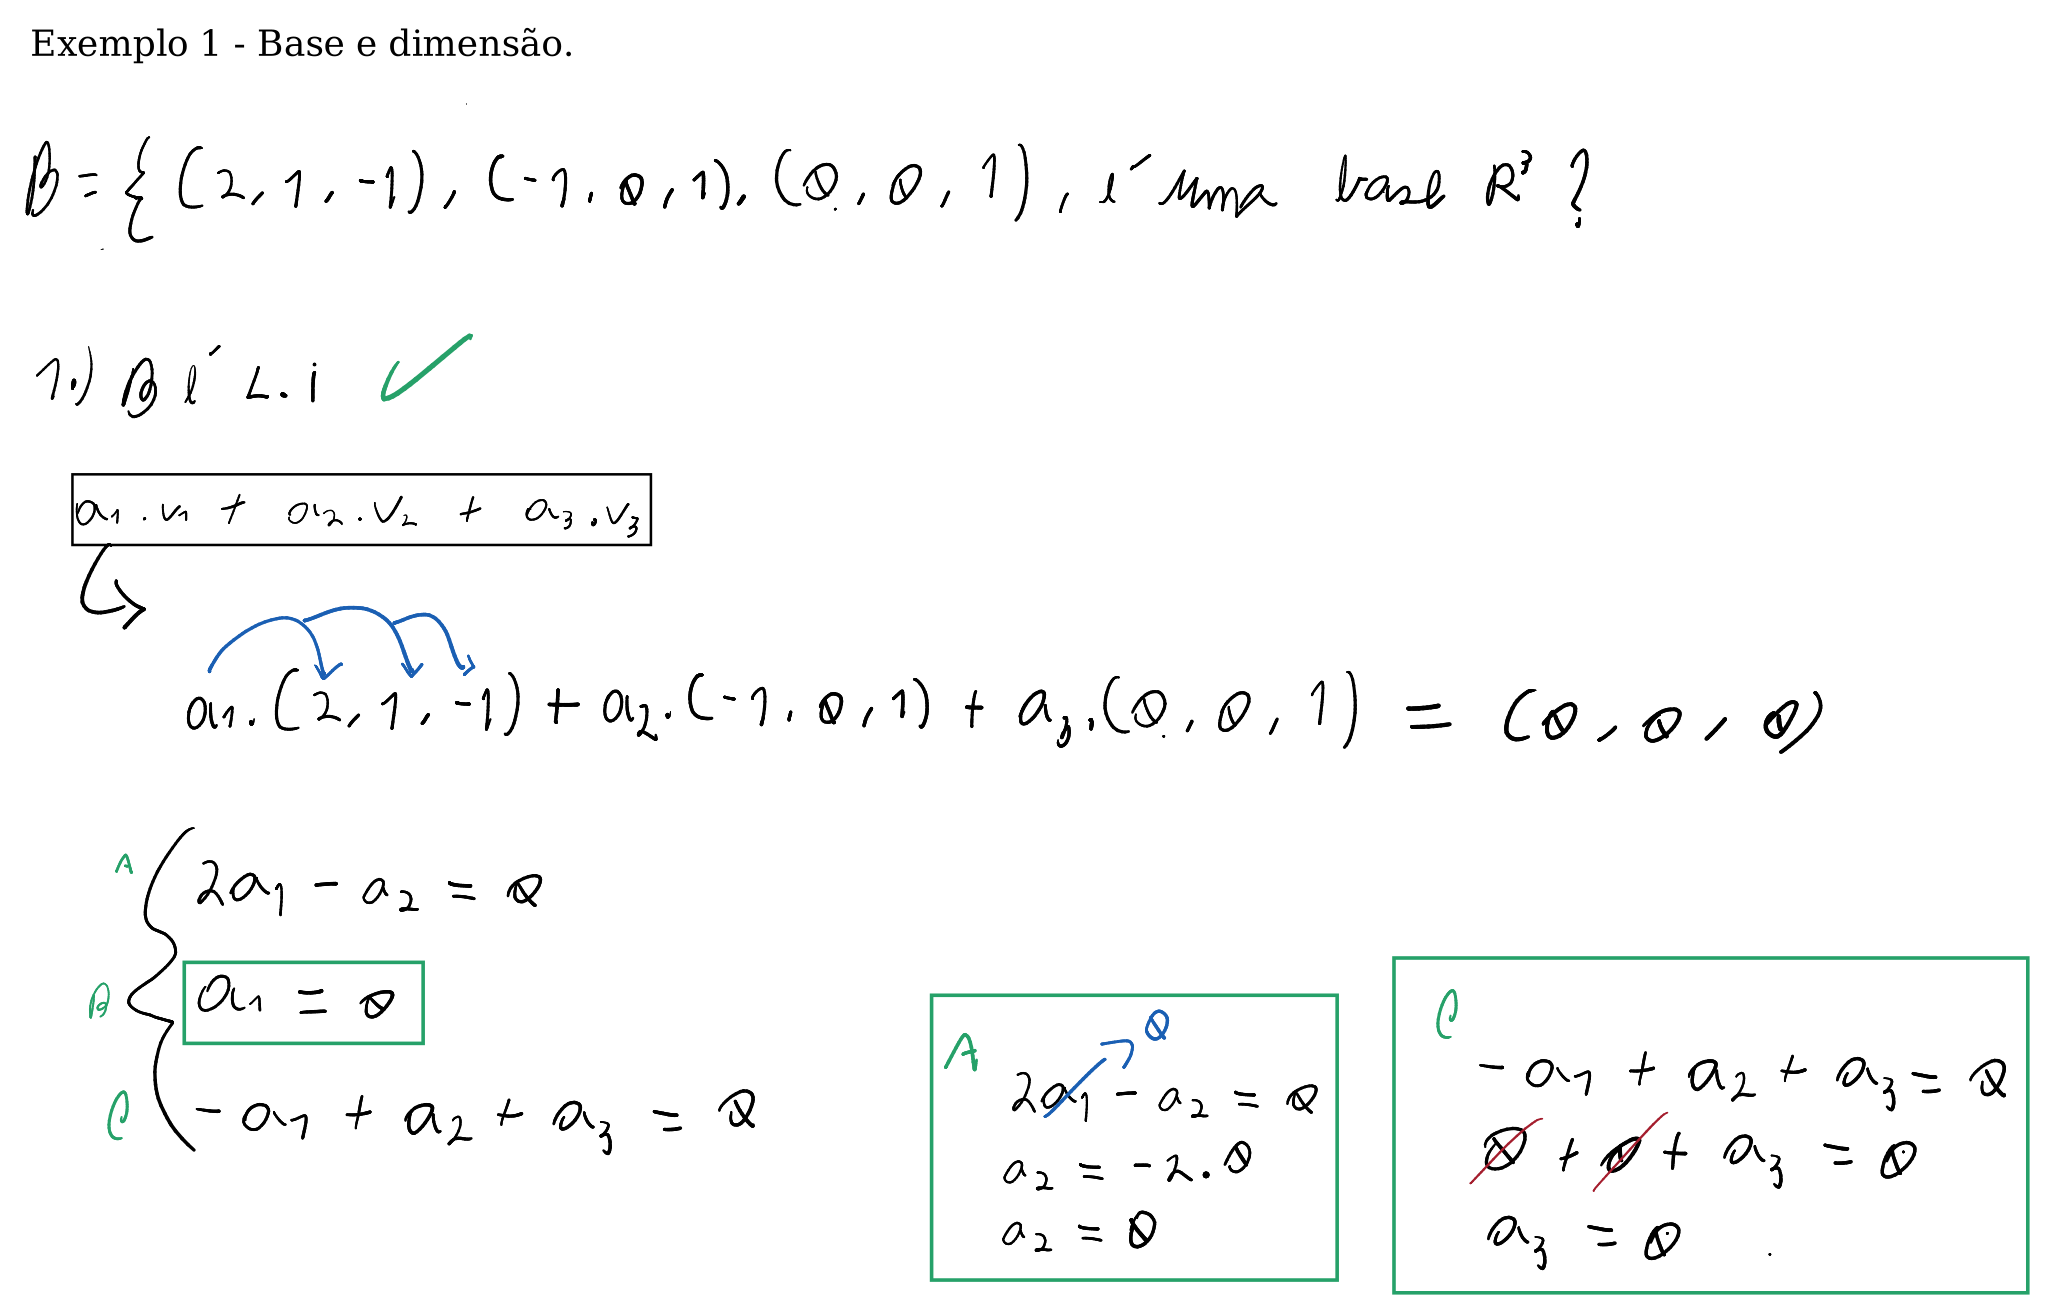 Exemplo 1 - Base e dimensão.
B = { (2, 1, -1), (-1, 0, 1), (0, 0, 1), é uma base R³ ?
1.) B é L.i ✓
a1 . v1 + a2 . v2 + a3 . v3
a1. (2, 1, -1) + a2. (-1, 0, 1) + a3. (0, 0, 1) = (0, 0, 0)
A 2a1 - a2 = 0
B a1 = 0
C -a1 + a2 + a3 = 0
A 0
2a1 - a2 = 0
a2 = -2.0
a2 = 0
C
-a1 + a2 + a3 = 0
0 + 0 + a3 = 0
a3 = 0